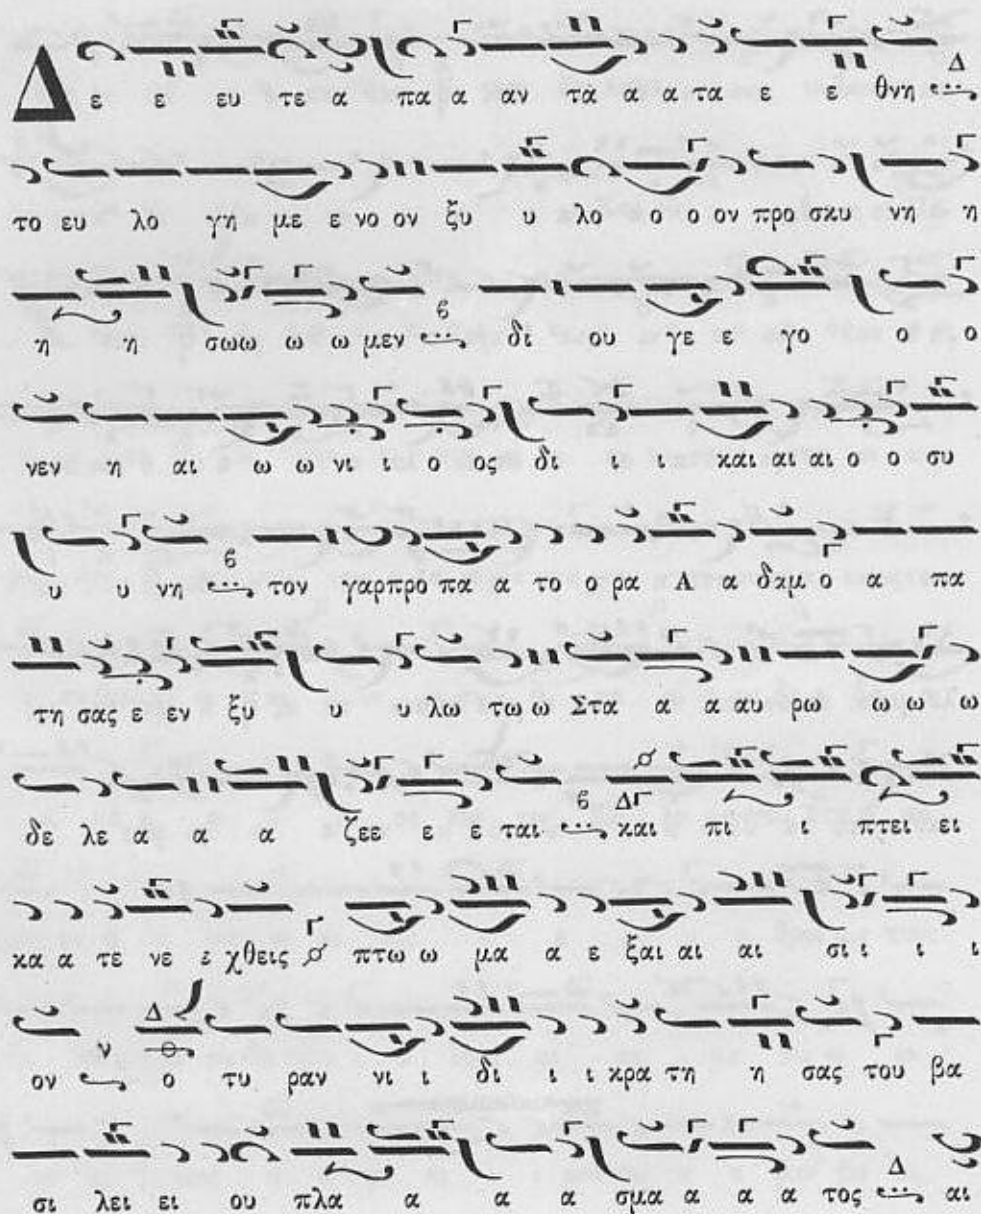 Δ ε ε ευ τε α πα α αν τα α α τα ε ε θνη Δ
το ευ λο γη με ε νο ον ξυ υ λο ο ο ον προ σκυ νη η
η η σωω ω ω μεν δι ου γε ε γο ο ο
νεν η αι ω ω νι ι ο ος δι ι ι και αι αι ο ο συ
υ υ νη τον γαρ προ πα α το ο ρα Α α δαμ ο α πα
τη σας ε εν ξυ υ υ λω τω ω Στα α α αυ ρω ω ω ω
δε λε α α α ζεε ε ε ται και πι ι ι πτει ει
κα α τε νε ε χθεις πτω ω μα α ε ξαι αι αι σι ι ι ι
ον ν ο τυ ραν νι ι δι ι ι κρα τη η σας του βα
σι λει ει ου πλα α α α α σμα α α α τος Δ αι